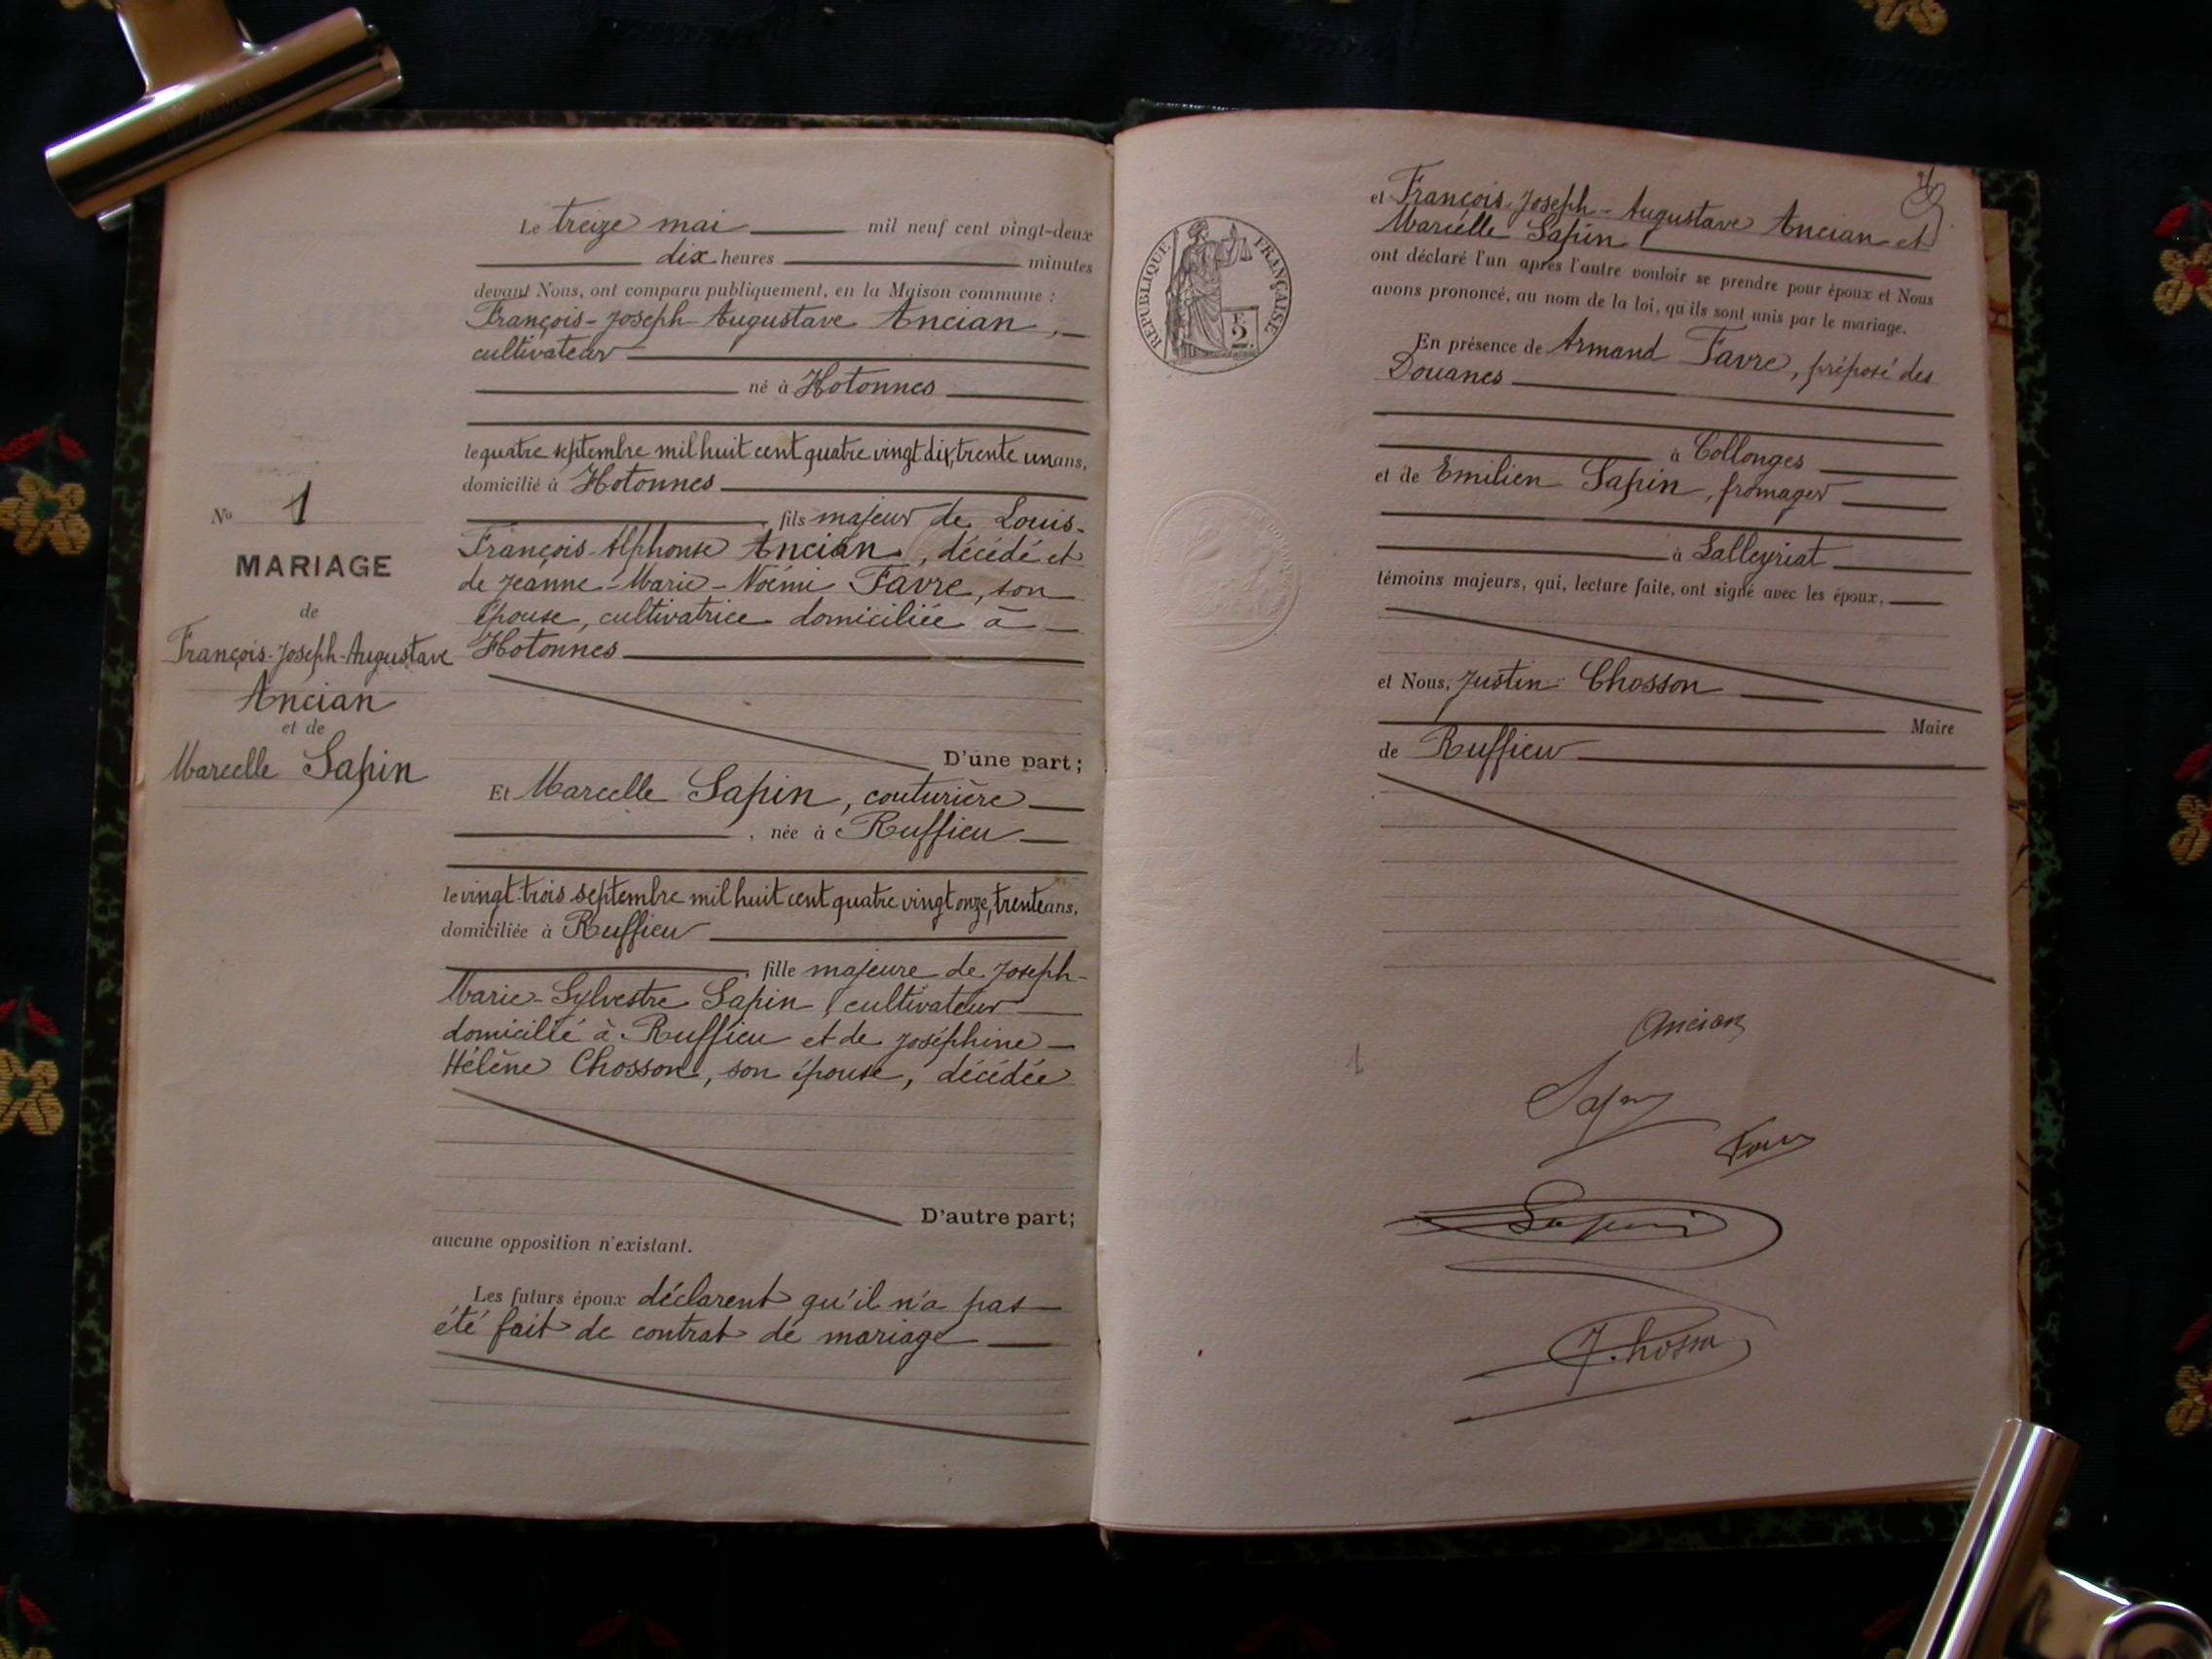 N° 1
MARIAGE
de
François-Joseph-Augustave
Ancian
et de
Marcelle Sapin
Le treize mai mil neuf cent vingt-deux
dix heures minutes
devant Nous, ont comparu publiquement, en la Maison commune :
François-Joseph-Augustave Ancian,
cultivateur
né à Hotonnes
le quatre septembre mil huit cent quatre vingt dix, trente un ans,
domicilié à Hotonnes
, fils majeur de Louis-
François-Alphonse Ancian, décédé et
de Jeanne-Marie-Noémi Favre, son
épouse, cultivatrice domiciliée à
Hotonnes
D'une part;
Et Marcelle Sapin, couturière
, née à Ruffieu
le vingt-trois septembre mil huit cent quatre vingt onze, trente ans,
domiciliée à Ruffieu
, fille majeure de Joseph-
Marie-Sylvestre Sapin, cultivateur
domicilié à Ruffieu et de Joséphine
Hélène Chosson, son épouse, décédée
D'autre part;
aucune opposition n'existant.
Les futurs époux déclarent qu'il n'a pas
été fait de contrat de mariage
RÉPUBLIQUE FRANÇAISE
F.
2.
et François-Joseph-Augustave Ancian et
Marcelle Sapin
ont déclaré l'un après l'autre vouloir se prendre pour époux et Nous
avons prononcé, au nom de la loi, qu'ils sont unis par le mariage.
En présence de Armand Favre, préposé des
Douanes
à Collonges
et de Emilien Sapin, fromager
à Lalleyriat
témoins majeurs, qui, lecture faite, ont signé avec les époux,
et Nous, Justin Chosson
Maire
de Ruffieu
Ancian
Sapin
Favre
Sapin
J. Chosson
1